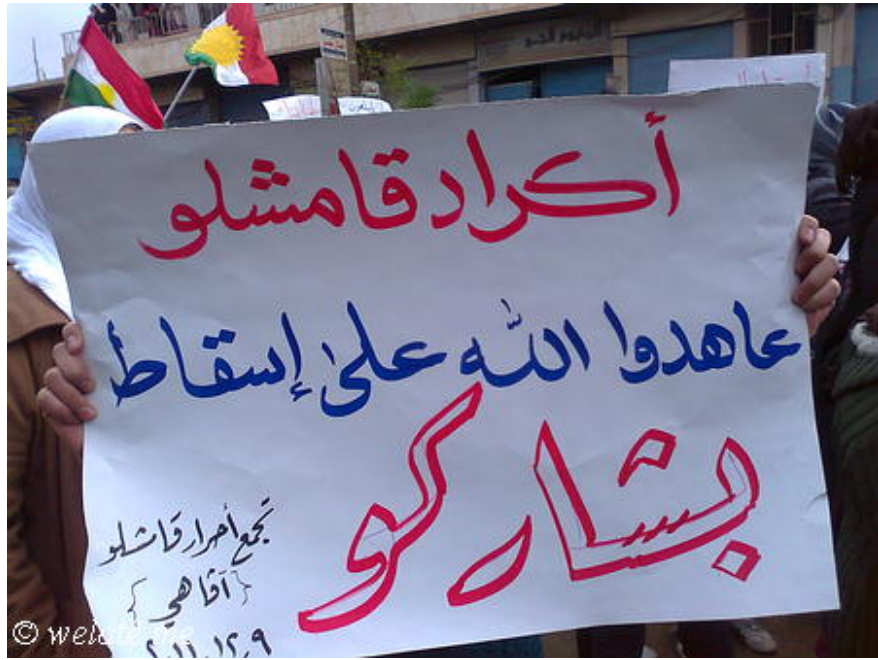 أكراد قامشلو
عاهدوا الله على إسقاط
بشاركو
تجمع أحرار قامشلو
{آفاهي}
© welate.me